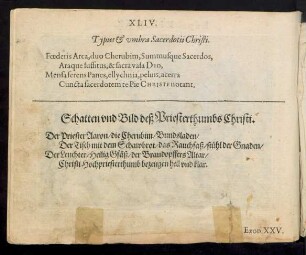 XLIV.
Typus & umbra Sacerdotii Christi.
Fœderis Arca, duo Cherubim, Summusque Sacerdos,
Ara que suffitus, & sacra vasa Deo,
Mensa ferens Panes, ellychnia, pelvis, acerra
Cuncta sacerdotem te Pie CHRISTE notant.
Schatten vnd Bild deß Priesterthumbs Christi.
Der Priester Aaron/ die Cherubim/ Bundsladen/
Der Tisch mit dem Schawbrot/ das Rauchfaß/ stühl der Gnaden/
Der Leuchter/ Heilig Gfäß/ der Brandopffers Altar/
Christi Hochpriesterthumb bezeugen hell vnd klar.
EXOD. XXV.